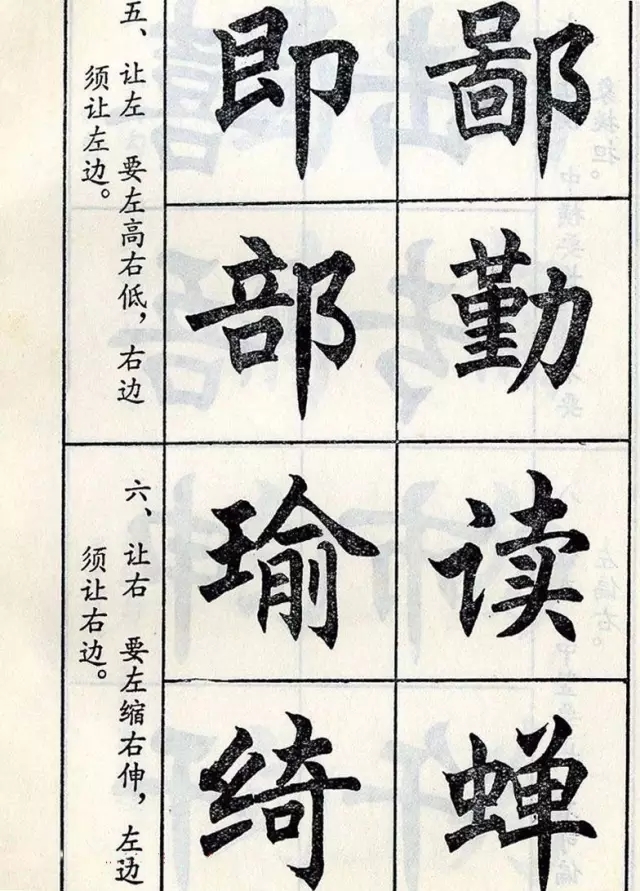 五、让左 要左高右低，右边
须让左边。
即 鄙
部 勤
六、让右 要左缩右伸，左边
须让右边。
瑜 读
绮 蝉